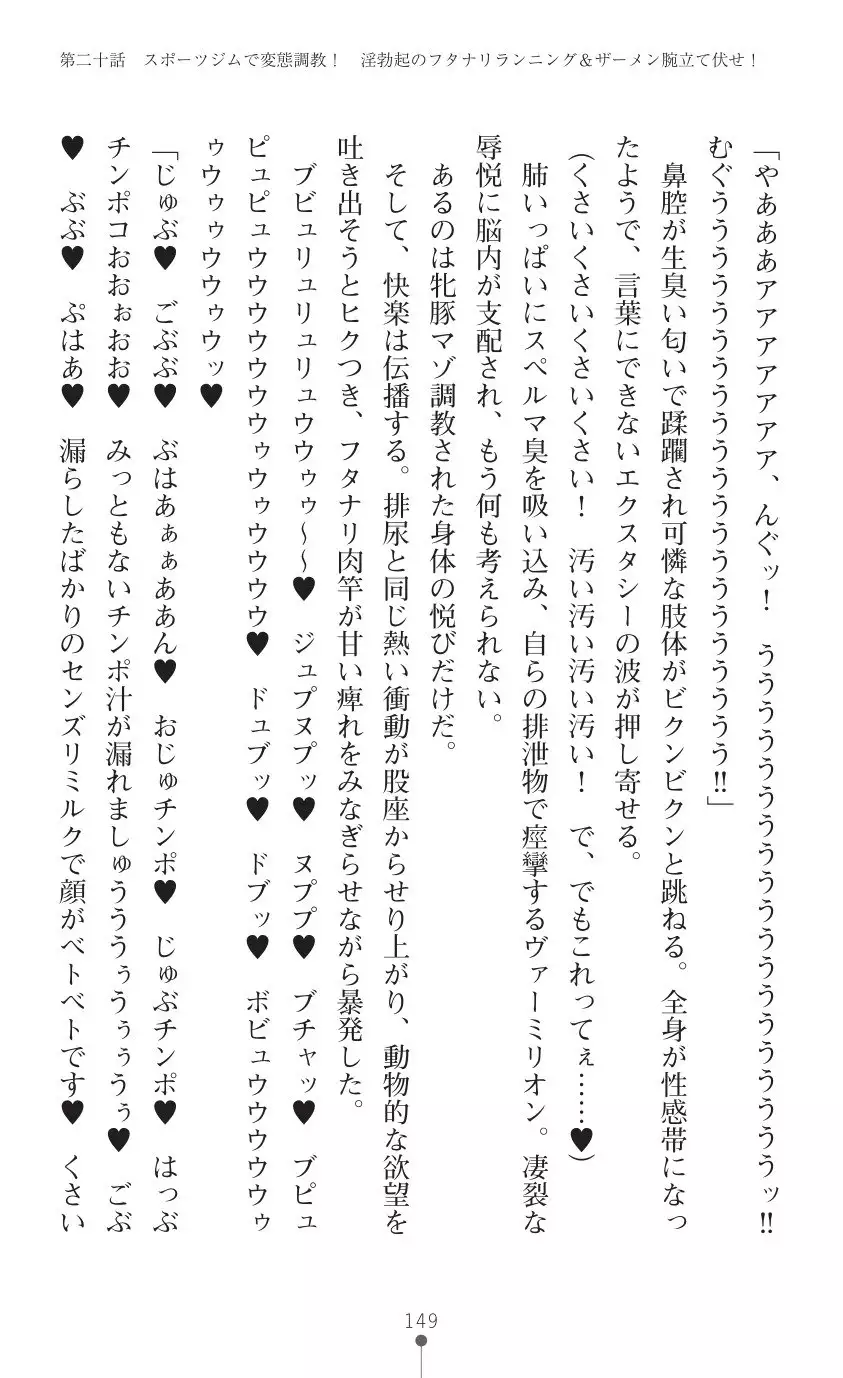 第二十話　スポーツジムで変態調教！　淫勃起のフタナリランニング＆ザーメン腕立て伏せ！
「やあああアアアアアアア、んぐッ！　ううううううううううううううううううううッ!!
むぐううううううううううううううううううううう!!」
　鼻腔が生臭い匂いで蹂躙され可憐な肢体がビクンビクンと跳ねる。全身が性感帯になっ
たようで、言葉にできないエクスタシーの波が押し寄せる。
（くさいくさいくさいくさい！　汚い汚い汚い汚い！　で、でもこれってぇ……♥）
　肺いっぱいにスペルマ臭を吸い込み、自らの排泄物で痙攣するヴァーミリオン。凄裂な
辱悦に脳内が支配され、もう何も考えられない。
　あるのは牝豚マゾ調教された身体の悦びだけだ。
　そして、快楽は伝播する。排尿と同じ熱い衝動が股座からせり上がり、動物的な欲望を
吐き出そうとヒクつき、フタナリ肉竿が甘い痺れをみなぎらせながら暴発した。
　ブビュリュリュリュウウゥゥ～～♥　ジュプヌプッ♥　ヌププ♥　ブチャッ♥　ブピュ
ピュピュウウウウウウウゥウゥウウウウ♥　ドュブッ♥　ドブッ♥　ボビュウウウウウゥ
ゥウゥゥウウゥウッ♥
「じゅぶ♥　ごぶぶ♥　ぶはあぁぁああん♥　おじゅチンポ♥　じゅぶチンポ♥　はっぶ
チンポコおおぉおお♥　みっともないチンポ汁が漏れましゅうううぅうぅぅうぅ♥　ごぶ
♥　ぶぶ♥　ぷはあ♥　漏らしたばかりのセンズリミルクで顔がベトベトです♥　くさい
149